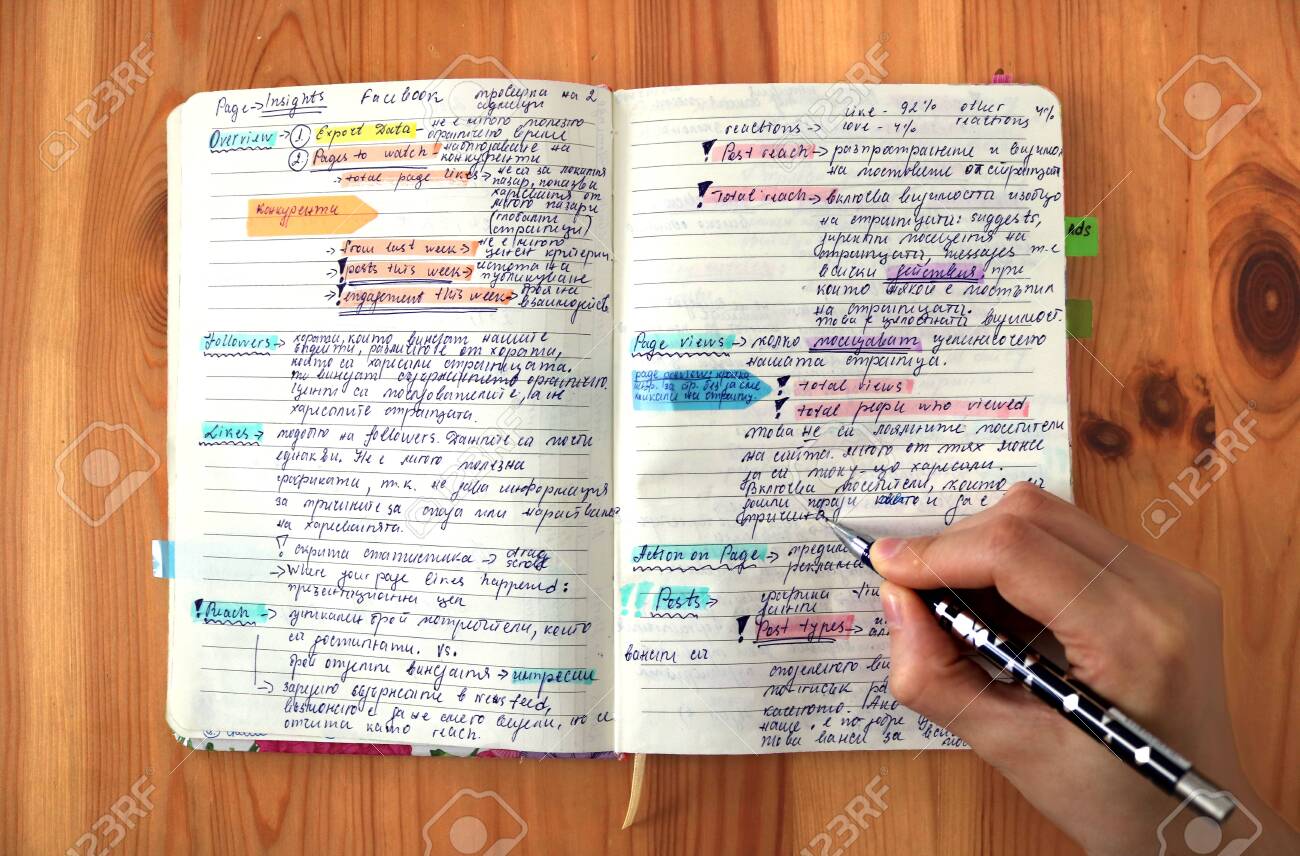 Page → Insights Facebook проверка на 2
седмици
Overview → ① Export Data - не е много полезно
ограничено време
② Pages to watch - наблюдаване на
конкуренти
→ total page likes → не са за локалния
пазар, показва
харесвания от
много пазари
(глобални
страници)
Конкуренти
→ from last week → не е много
ценен критерий
! posts this week →
публикуване
! engagement this week → броя на
взаимодейств.
Followers → хората, които виждат нашите
ъпдейти, различно е от хората,
които са харесали страницата.
те виждат съдържанието органично.
Ценни са последователите, а не
харесалите страницата.
Likes → подобно на followers. Данните са почти
еднакви. Не е много полезна
графиката, т.к. не дава информация
за причините за спада или нарастване
на харесванията.
! скрита статистика → drag
scroll
→ Where your page likes happened:
презентационна цел
! Reach → уникален брой потребители, които
са достигнати. vs.
брой отделни виждания → импресии
→ зареждане в newsfeed,
възможно е да не са го видели, но се
отчита като reach.
like - 92% other
reactions → love - 4% reactions 4%
! Post reach →
на постовете от страницата
! Total reach → включва видимостта изобщо
на страницата: suggests,
директни посещения на
страницата, messages т.е.
всички действия при
които някой е попаднал
на страницата.
това е цялостната видимост.
Ads
Page views → колко посещават
нашата страница.
page preview:
! total views
! total people who viewed
това не са лоялните посетители
на сайта. много от тях може
да са току-що харесали.
Включва посетители, които са
дошли поради каквато и да е
причина
Action on Page →
!! Posts → графика
! Post types →
важни са
качеството.